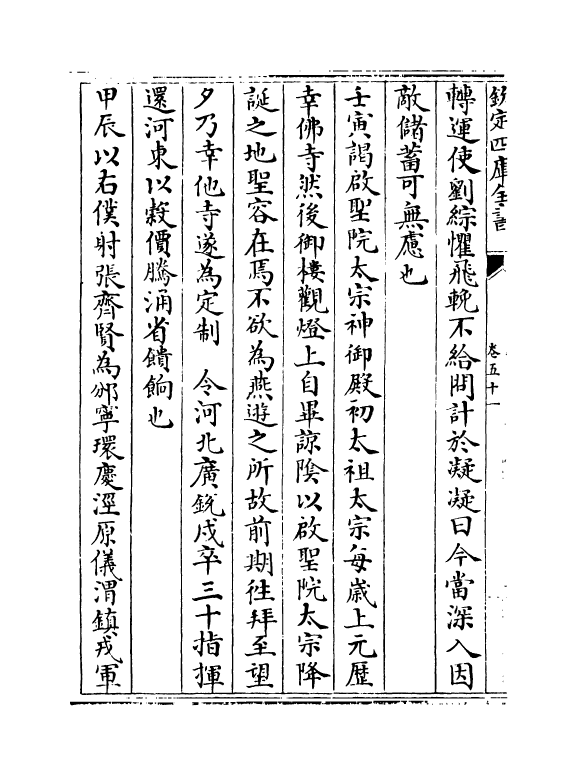 欽定四庫全書
卷五十一
轉運使劉綜懼飛輓不給問計於凝凝曰今當深入因
敵儲蓄可無慮也
壬寅謁啟聖院太宗神御殿初太祖太宗每歲上元歴
幸佛寺然後御樓觀燈上自畢諒隂以啟聖院太宗降
誕之地聖容在焉不欲為燕遊之所故前期徃拜至望
夕乃幸他寺遂為定制 令河北廣鋭戍卒三十指揮
還河東以穀價騰涌省饋餉也
甲辰以右僕射張齊賢為邠寧環慶涇原儀渭鎮戎軍